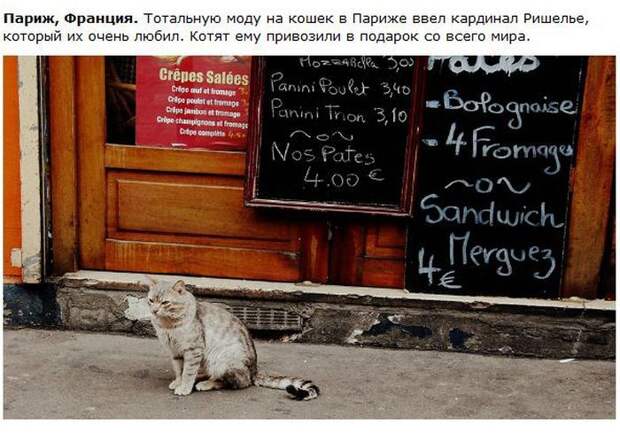 Париж, Франция. Тотальную моду на кошек в Париже ввел кардинал Ришелье,
который их очень любил. Котят ему привозили в подарок со всего мира.
Crêpes Salées
Crêpe œuf et fromage
Crêpe poulet et fromage
Crêpe jambon et fromage
Crêpe champignons et fromage
Crêpe complète
Mozzarella 3,00
Panini Poulet 3,40
Panini Trion 3,10
Nos Pates
4.00 €
Pates
- Bolognaise
- 4 Fromages
Sandwich
Merguez
4 €